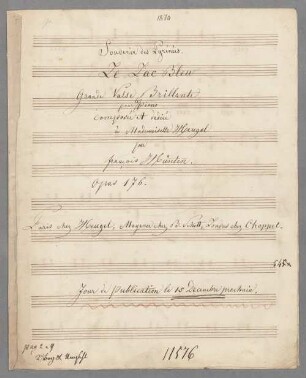 1870
Souvenir des Pyrénées
Le Lac Bleu
Grande Valse Brillante
pour Piano
composée et dédiée
à Mademoiselle Heugel
par
françois Hünten.
Opus 176.
Paris chez Heugel, Mayence chez B. Schott, Londres chez Chappel.
Jour de publication le 15 Decembre prochain.
pag 2-9
11576